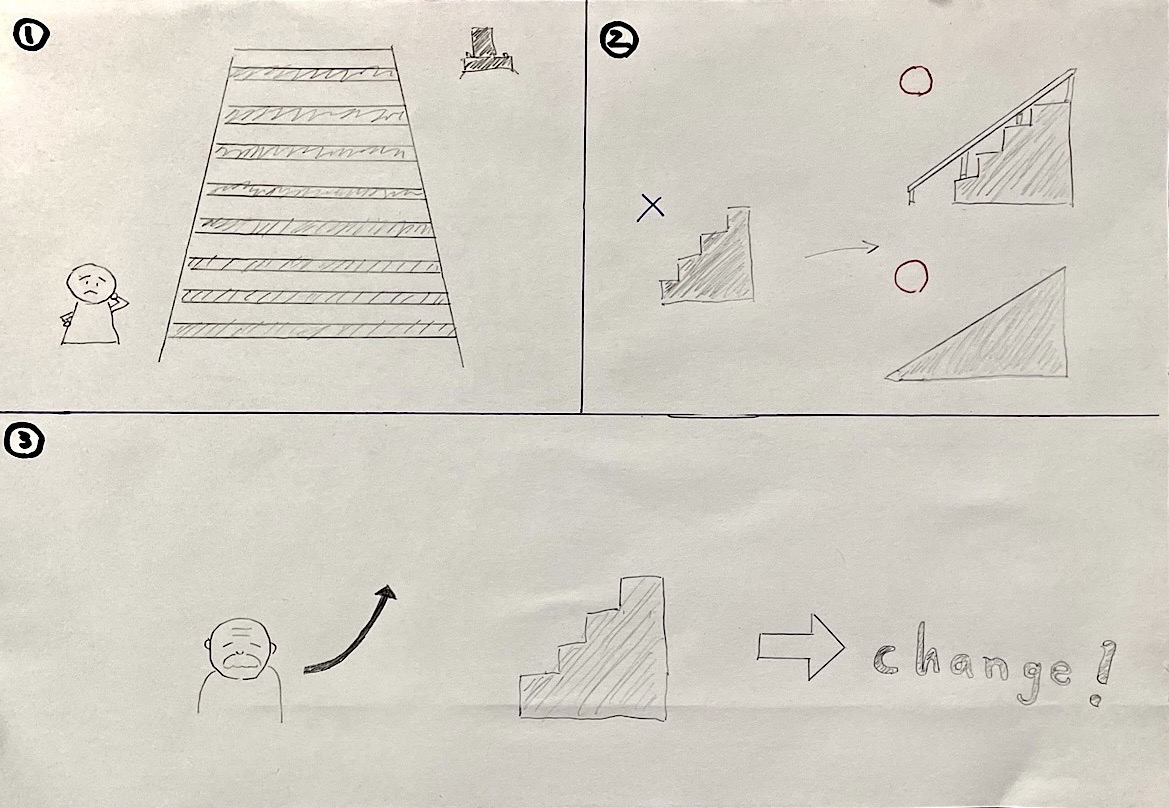 1
2
3
change!